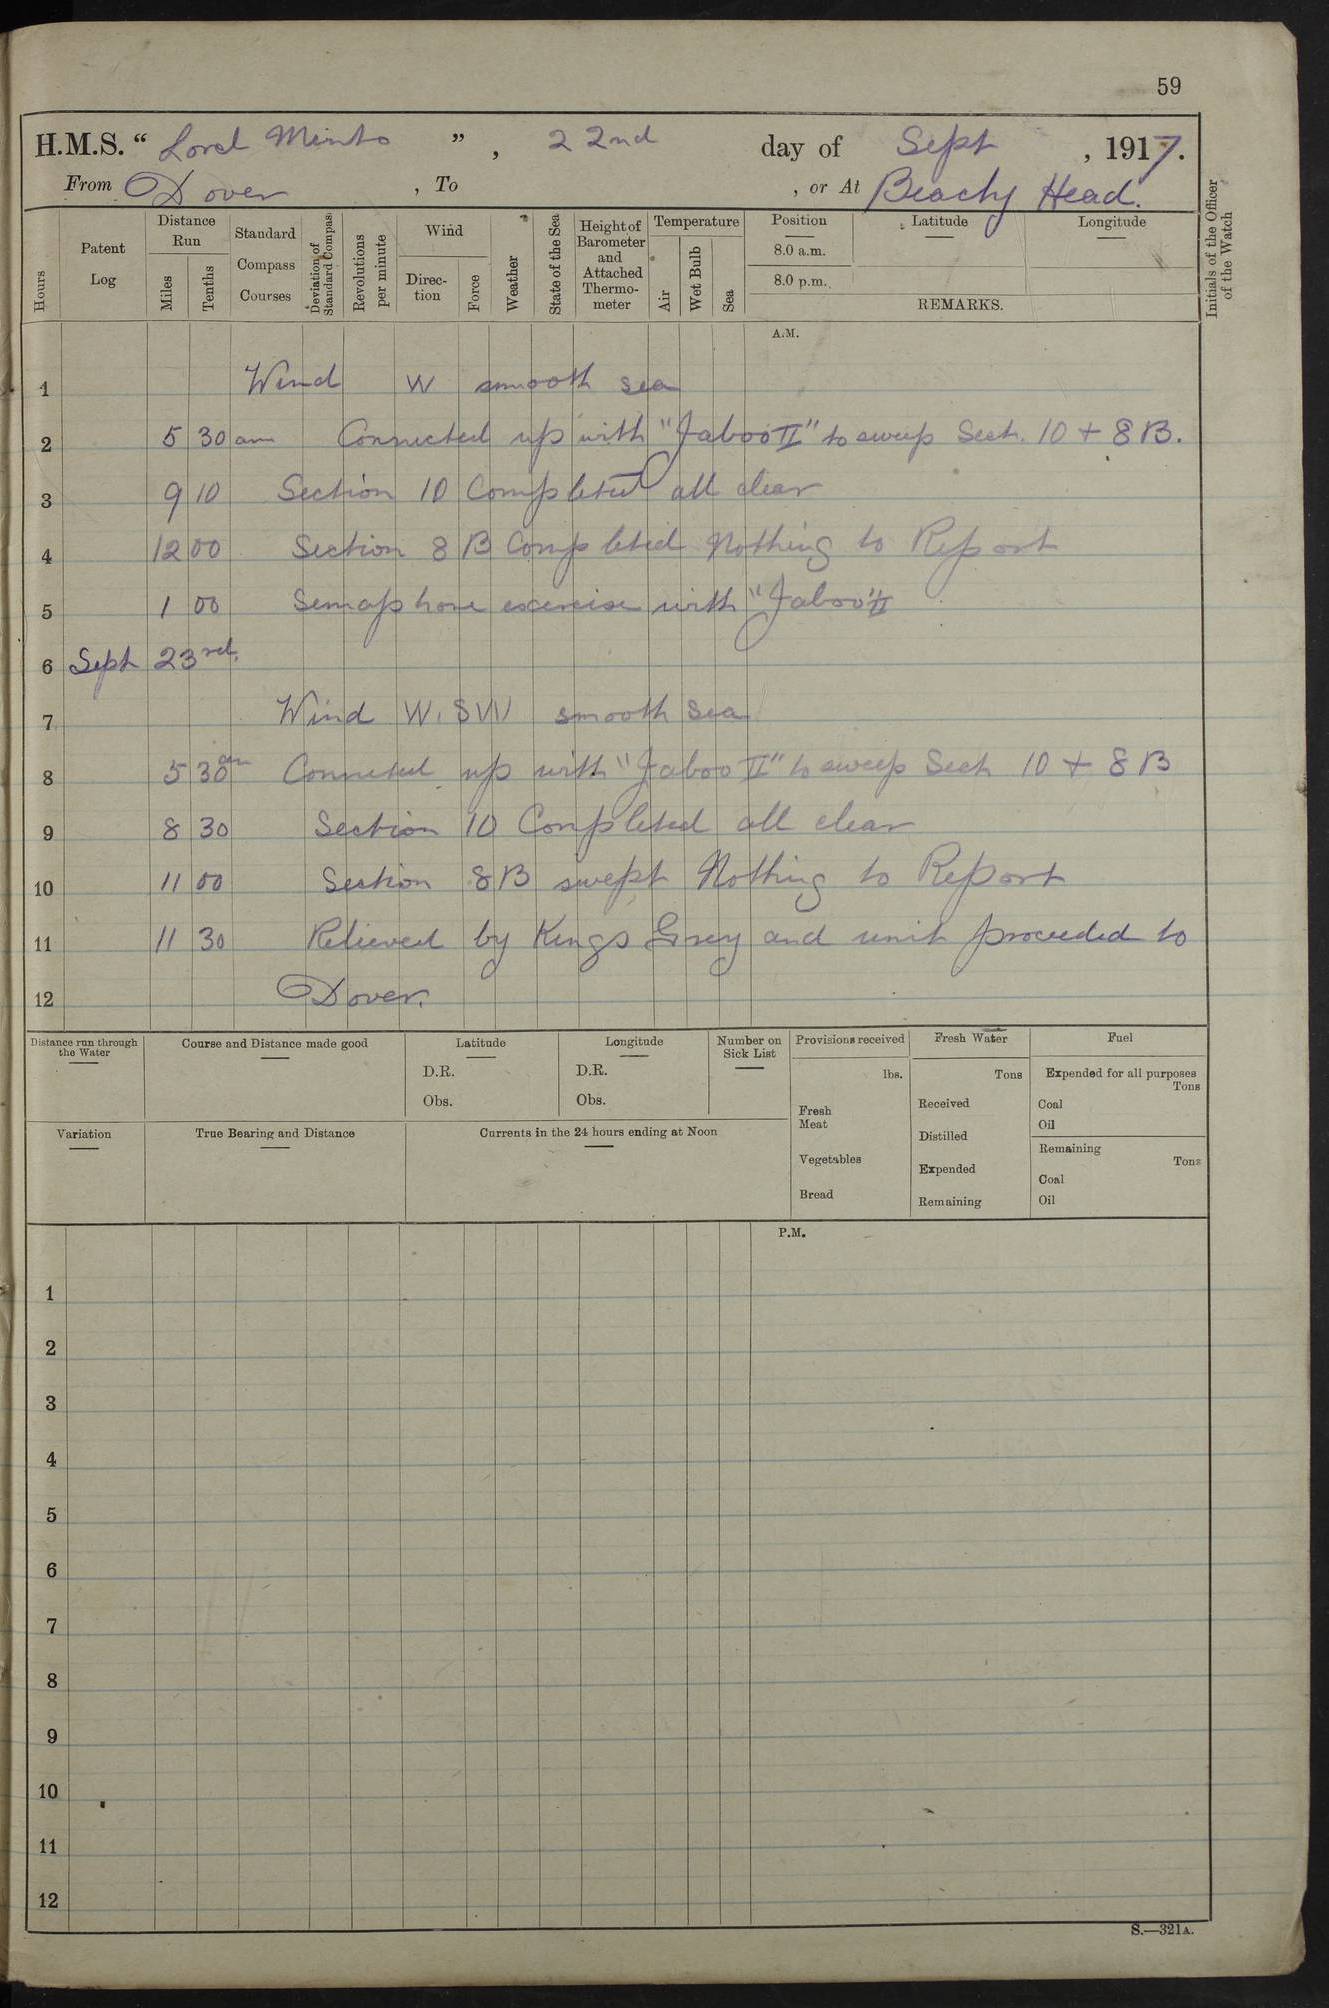 59
H.M.S. “ Lord Minto ” , 22nd day of Sept , 1917.
From Dover , To , or At Beachy Head.
Hours
Patent Log
Distance Run
Miles
Tenths
Standard Compass Courses
Deviation of Standard Compass
Revolutions per minute
Wind
Direction
Force
Weather
State of the Sea
Height of Barometer and Attached Thermometer
Temperature
Air
Wet Bulb
Sea
Position Latitude Longitude
8.0 a.m.
8.0 p.m.
REMARKS.
Initials of the Officer of the Watch
A.M.
1 Wind W smooth sea
2 5 30 am Connected up with "Jaboo II" to sweep Sect. 10 + 8 B.
3 9 10 Section 10 Completed all clear
4 12 00 Section 8 B Completed Nothing to Report
5 1 00 Semaphore exercise with "Jaboo" II
6 Sept 23rd.
7 Wind W.SW smooth sea
8 5 30 am Connected up with "Jaboo II" to sweep Sect 10 + 8 B
9 8 30 Section 10 Completed all clear
10 11 00 Section 8 B swept Nothing to Report
11 11 30 Relieved by Kings Grey and unit proceeded to
12 Dover.
Distance run through the Water
Course and Distance made good
Latitude
D.R.
Obs.
Longitude
D.R.
Obs.
Number on Sick List
Provisions received
lbs.
Fresh Meat
Vegetables
Bread
Fresh Water
Tons
Received
Distilled
Expended
Remaining
Fuel
Expended for all purposes
Tons
Coal
Oil
Remaining
Tons
Coal
Oil
Variation
True Bearing and Distance
Currents in the 24 hours ending at Noon
P.M.
1
2
3
4
5
6
7
8
9
10
11
12
S.—321A.